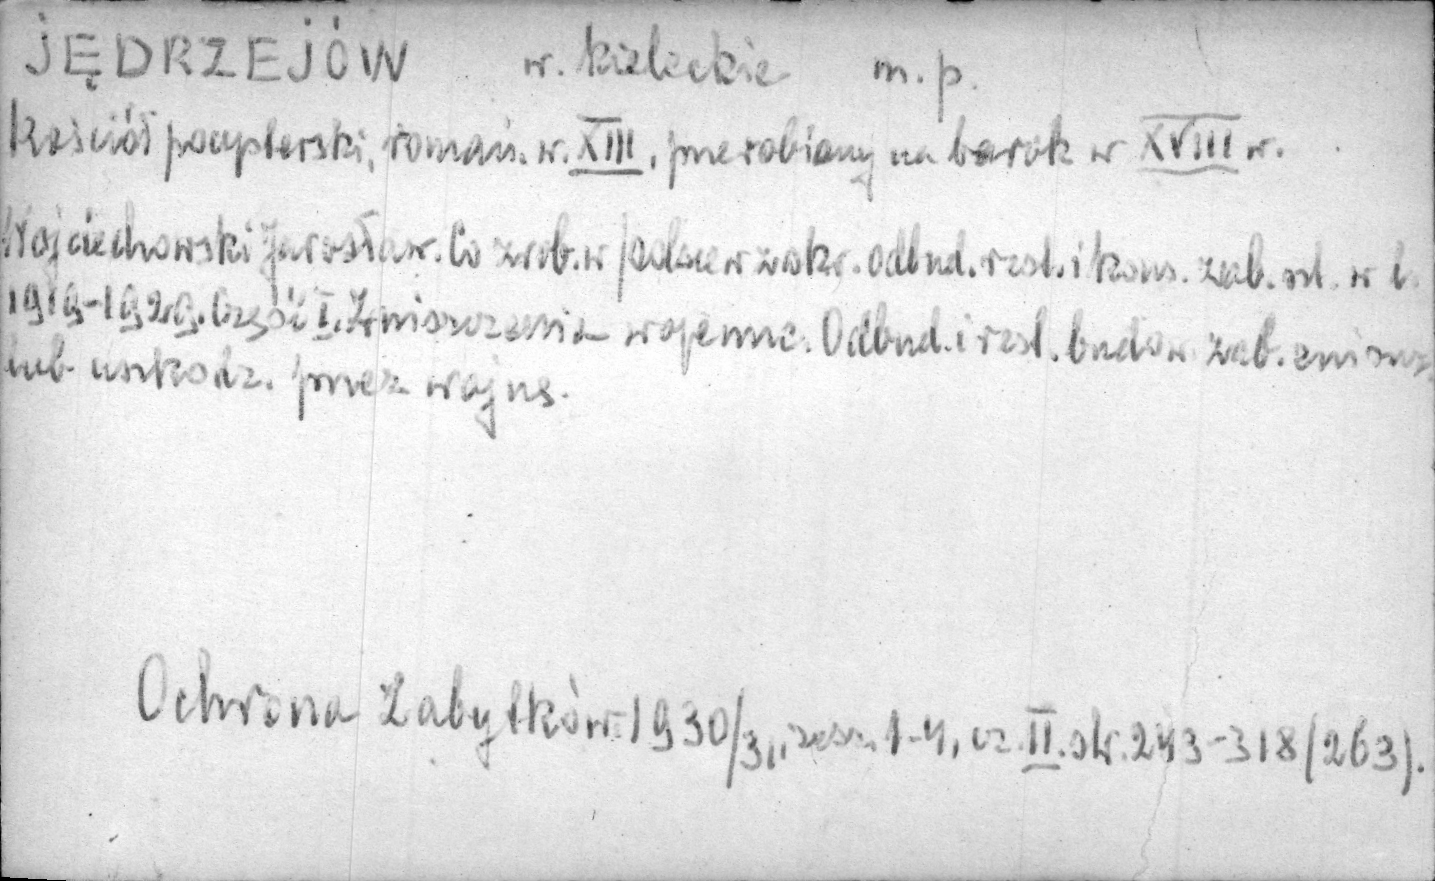 JĘDRZEJÓW w. kieleckie m. p.
Kościół pocysterski, romań. w. XIII, przerobiony na barok w XVIII w.
Wojciechowski Jarosław. Co zrob. w Polsce w zakr. odbud. rest. i kons. zab. szt. w l.
1919-1929. Część I. Zniszczenia wojenne. Odbud. i rest. budow. zab. zniszcz.
lub uszkodz. przez wojnę.
Ochrona Zabytków 1930/31, zesz. 1-4, cz. II. str. 243-318 (263).